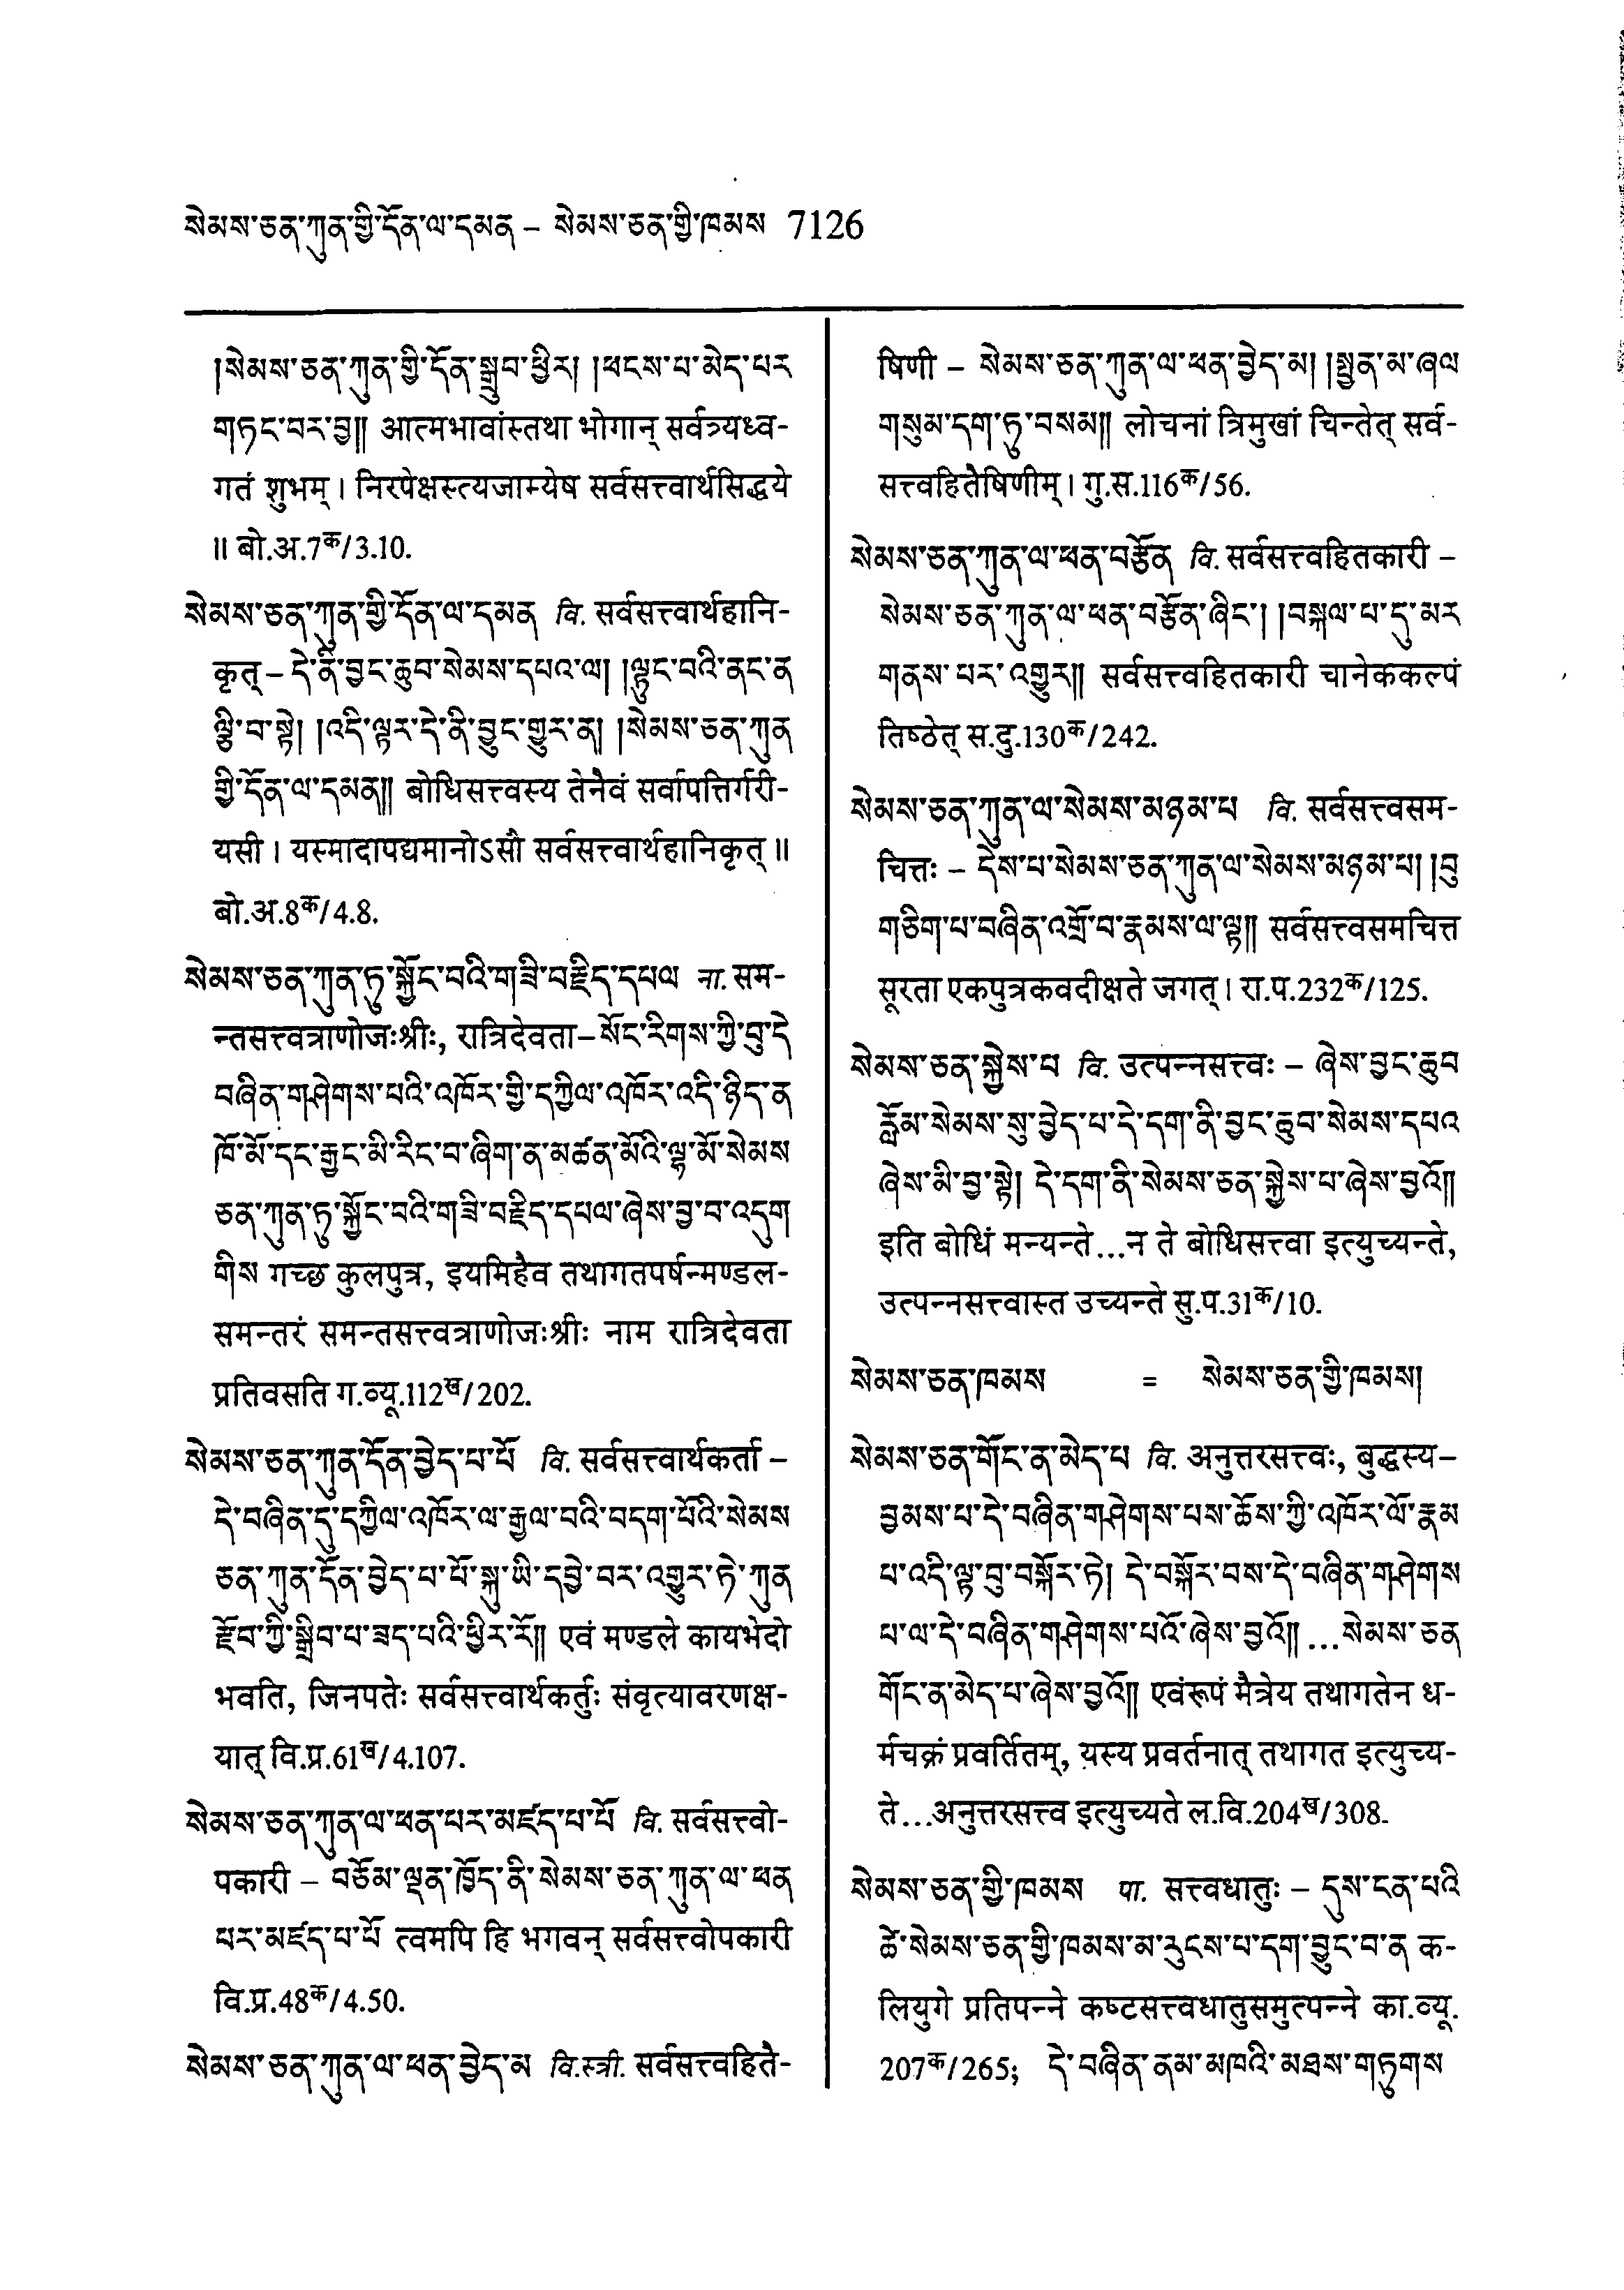 སེམས་ཅན་ཀུན་གྱི་དོན་ལ་དམན – སེམས་ཅན་གྱི་ཁམས 7126
།སེམས་ཅན་ཀུན་གྱི་དོན་སྒྲུབ་ཕྱིར། །ཕངས་པ་མེད་པར
གཏང་བར་བྱ༎ आत्मभावांस्तथा भोगान् सर्वत्र्यध्व-
गतं शुभम् । निरपेक्षस्त्यजाम्येष सर्वसत्त्वार्थसिद्धये
॥ बो.अ.7क/3.10.
སེམས་ཅན་ཀུན་གྱི་དོན་ལ་དམན वि. सर्वसत्त्वार्थहानि-
कृत् – དེ་ནི་བྱང་ཆུབ་སེམས་དཔའ་ལ། །ལྟུང་བའི་ནང་ན
ལྕི་བ་སྟེ། །འདི་ལྟར་དེ་ནི་བྱུང་གྱུར་ན། །སེམས་ཅན་ཀུན
གྱི་དོན་ལ་དམན༎ बोधिसत्त्वस्य तेनैवं सर्वापत्तिर्गरी-
यसी । यस्मादापद्यमानोऽसौ सर्वसत्त्वार्थहानिकृत् ॥
बो.अ.8क/4.8.
སེམས་ཅན་ཀུན་ཏུ་སྐྱོང་བའི་གཟི་བརྗིད་དཔལ ना. सम-
न्तसत्त्वत्राणोजःश्रीः, रात्रिदेवता – སོང་རིགས་ཀྱི་བུ་དེ
བཞིན་གཤེགས་པའི་འཁོར་གྱི་དཀྱིལ་འཁོར་འདི་ཉིད་ན
ཁོ་མོ་དང་རྒྱང་མི་རིང་བ་ཞིག་ན་མཚན་མོའི་ལྷ་མོ་སེམས
ཅན་ཀུན་ཏུ་སྐྱོང་བའི་གཟི་བརྗིད་དཔལ་ཞེས་བྱ་བ་འདུག
གིས गच्छ कुलपुत्र, इयमिहैव तथागतपर्षन्मण्डल-
समन्तरं समन्तसत्त्वत्राणोजःश्रीः नाम रात्रिदेवता
प्रतिवसति ग.व्यू.112ख/202.
སེམས་ཅན་ཀུན་དོན་བྱེད་པ་པོ वि. सर्वसत्त्वार्थकर्ता –
དེ་བཞིན་དུ་དཀྱིལ་འཁོར་ལ་རྒྱལ་བའི་བདག་པོའི་སེམས
ཅན་ཀུན་དོན་བྱེད་པ་པོ་སྐུ་ཡི་དབྱེ་བར་འགྱུར་ཏེ་ཀུན
རྫོབ་ཀྱི་སྒྲིབ་པ་ཟད་པའི་ཕྱིར་རོ༎ एवं मण्डले कायभेदो
भवति, जिनपतेः सर्वसत्त्वार्थकर्तुः संवृत्यावरणक्ष-
यात् वि.प्र.61ख/4.107.
སེམས་ཅན་ཀུན་ལ་ཕན་པར་མཛད་པ་པོ वि. सर्वसत्त्वो-
पकारी – བཅོམ་ལྡན་ཁྱོད་ནི་སེམས་ཅན་ཀུན་ལ་ཕན
པར་མཛད་པ་པོ त्वमपि हि भगवन् सर्वसत्त्वोपकारी
वि.प्र.48क/4.50.
སེམས་ཅན་ཀུན་ལ་ཕན་བྱེད་མ वि.स्त्री. सर्वसत्त्वहितै-
षिणी – སེམས་ཅན་ཀུན་ལ་ཕན་བྱེད་མ། །སྤྱན་མ་ཞལ
གསུམ་དག་ཏུ་བསམ༎ लोचनां त्रिमुखां चिन्तेत् सर्व-
सत्त्वहितैषिणीम् । गु.स.116क/56.
སེམས་ཅན་ཀུན་ལ་ཕན་བརྩོན वि. सर्वसत्त्वहितकारी –
སེམས་ཅན་ཀུན་ལ་ཕན་བརྩོན་ཞིང་། །བསྐལ་པ་དུ་མར
གནས་པར་འགྱུར༎ सर्वसत्त्वहितकारी चानेककल्पं
तिष्ठेत् स.दु.130क/242.
སེམས་ཅན་ཀུན་ལ་སེམས་མཉམ་པ वि. सर्वसत्त्वसम-
चित्तः – དེས་པ་སེམས་ཅན་ཀུན་ལ་སེམས་མཉམ་པ། །བུ
གཅིག་པ་བཞིན་འགྲོ་བ་རྣམས་ལ་ལྟ༎ सर्वसत्त्वसमचित्त
सूरता एकपुत्रकवदीक्षते जगत् । रा.प.232क/125.
སེམས་ཅན་སྐྱེས་པ वि. उत्पन्नसत्त्वः – ཞེས་བྱང་ཆུབ
རློམ་སེམས་སུ་བྱེད་པ་དེ་དག་ནི་བྱང་ཆུབ་སེམས་དཔའ
ཞེས་མི་བྱ་སྟེ། དེ་དག་ནི་སེམས་ཅན་སྐྱེས་པ་ཞེས་བྱའོ༎
इति बोधिं मन्यन्ते...न ते बोधिसत्त्वा इत्युच्यन्ते,
उत्पन्नसत्त्वास्त उच्यन्ते सु.प.31क/10.
སེམས་ཅན་ཁམས = སེམས་ཅན་གྱི་ཁམས།
སེམས་ཅན་གོང་ན་མེད་པ वि. अनुत्तरसत्त्वः, बुद्धस्य –
བྱམས་པ་དེ་བཞིན་གཤེགས་པས་ཆོས་ཀྱི་འཁོར་ལོ་རྣམ
པ་འདི་ལྟ་བུ་བསྐོར་ཏེ། དེ་བསྐོར་བས་དེ་བཞིན་གཤེགས
པ་ལ་དེ་བཞིན་གཤེགས་པའོ་ཞེས་བྱའོ༎ ...སེམས་ཅན
གོང་ན་མེད་པ་ཞེས་བྱའོ༎ एवंरूपं मैत्रेय तथागतेन ध-
र्मचक्रं प्रवर्तितम्, यस्य प्रवर्तनात् तथागत इत्युच्य-
ते...अनुत्तरसत्त्व इत्युच्यते ल.वि.204ख/308.
སེམས་ཅན་གྱི་ཁམས पा. सत्त्वधातुः – དུས་ངན་པའི
ཚེ་སེམས་ཅན་གྱི་ཁམས་མ་རུངས་པ་དག་བྱུང་བ་ན क-
लियुगे प्रतिपन्ने कष्टसत्त्वधातुसमुत्पन्ने का.व्यू.
207क/265; དེ་བཞིན་ནམ་མཁའི་མཐས་གཏུགས